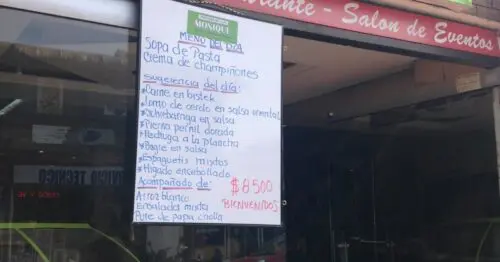 MONIQUE
MENÚ DEL DÍA
Sopa de Pasta
Crema de champiñones
Sugerencia del día:
*Carne en bistek
*Lomo de cerdo en salsa oriental
*Sobrebarriga en salsa
*Pierna pernil dorada
*Pechuga a la plancha
*Bagre en salsa
*Espaguetis mixtos
*Higado encebollado
Acompañado de:
Arroz blanco
Ensalada mixta
Pure de papa criolla
$8500
BIENVENIDOS
rante - Salon de Eventos
TECNICO